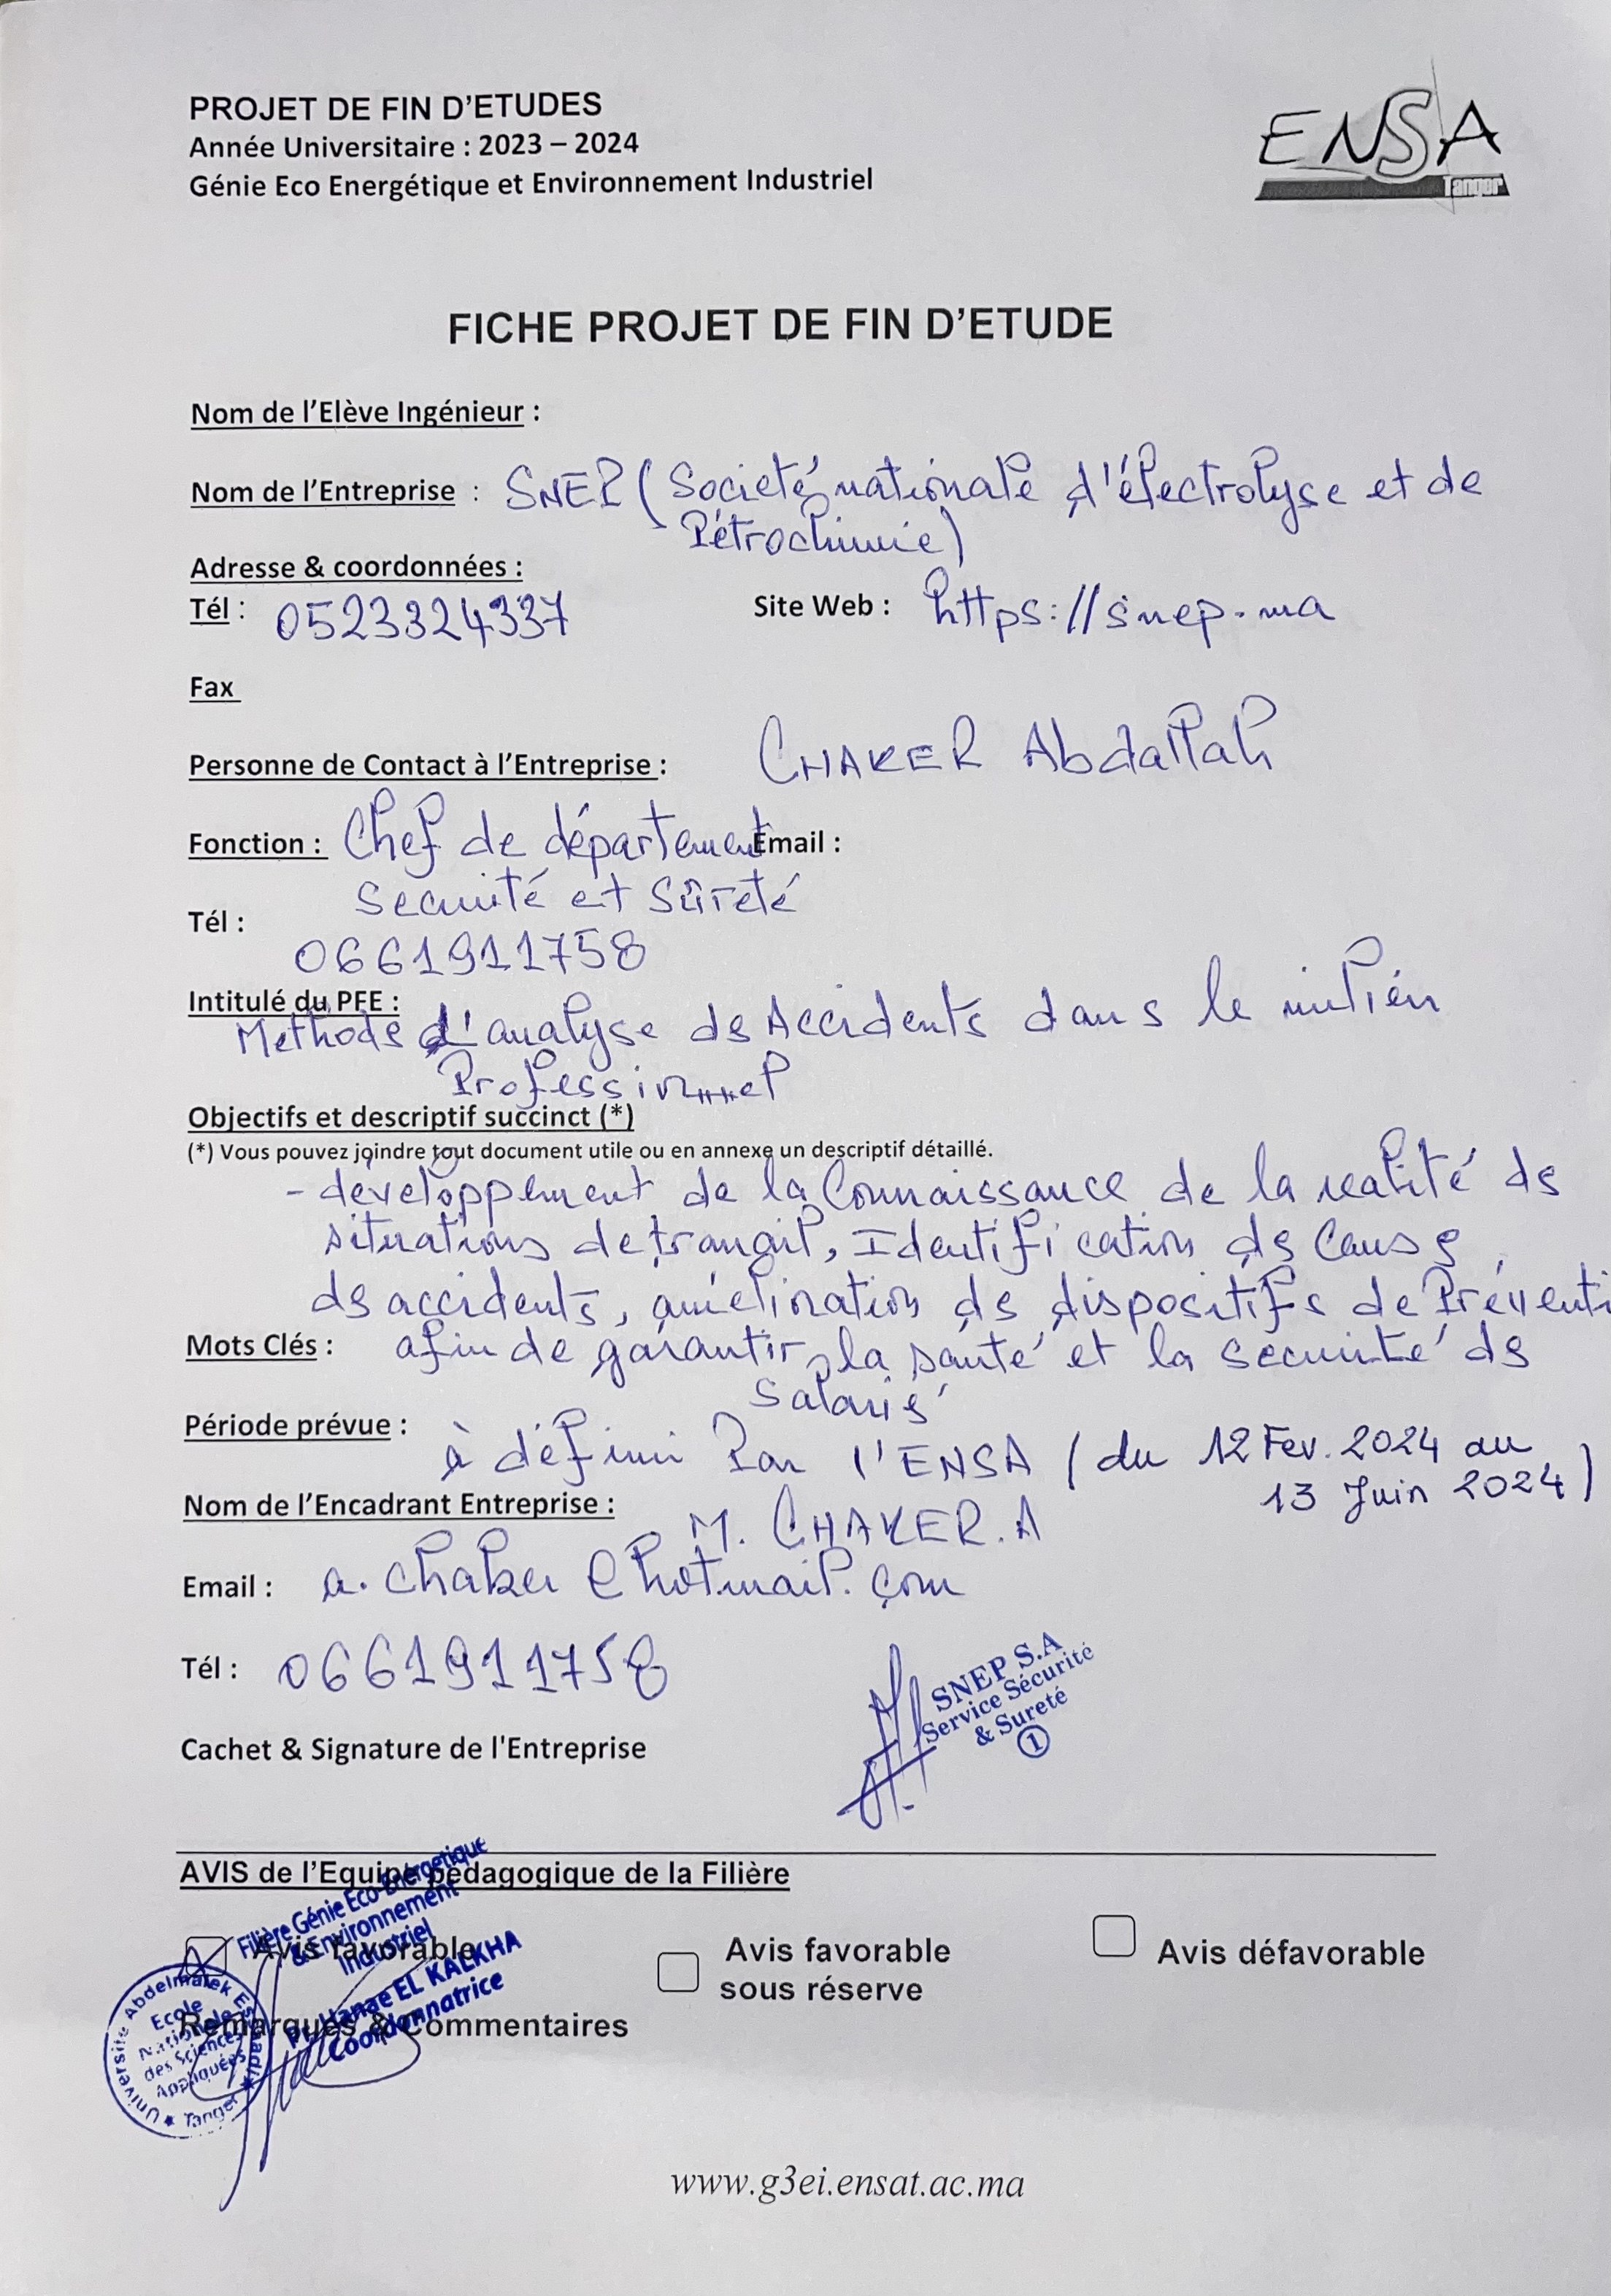 PROJET DE FIN D'ETUDES
Année Universitaire : 2023 – 2024
Génie Eco Energétique et Environnement Industriel
ENSA
Tanger
FICHE PROJET DE FIN D'ETUDE
Nom de l'Elève Ingénieur :
Nom de l'Entreprise : SNEP (Societé nationale d'électrolyse et de
Pétrochimie)
Adresse & coordonnées :
Tél : 0523324337 Site Web : https://snep.ma
Fax
Personne de Contact à l'Entreprise : CHAKER Abdallah
Fonction : Chef de département Email :
Securité et Sûreté
Tél :
0661911758
Intitulé du PFE :
Methods d'analyse ds Accidents dans le milieu
Professionnel
Objectifs et descriptif succinct (*)
(*) Vous pouvez joindre tout document utile ou en annexe un descriptif détaillé.
- développement de la Connaissance de la realité ds
situations de travail, Identification ds Causes
ds accidents, amélioration ds dispositifs de Préventi
Mots Clés : afin de garantir la santé et la securité ds
Salariés
Période prévue :
à définir Par l'ENSA (du 12 Fev. 2024 au
13 Juin 2024)
Nom de l'Encadrant Entreprise :
M. CHAKER.A
Email : a.chaker@hotmail.com
Tél : 0661911758
SNEP S.A
Service Sécurité
& Sureté
1
Cachet & Signature de l'Entreprise
AVIS de l'Equipe pédagogique de la Filière
Filière Génie Eco-Energetique
& Environnement
Industriel
Pr. Hanae EL KALKHA
Coordonnatrice
Avis favorable
Avis favorable
sous réserve
Avis défavorable
Université Abdelmalek Essaadi
Ecole
Nationale
des Sciences
Appliquées
Tanger
Remarques & Commentaires
www.g3ei.ensat.ac.ma